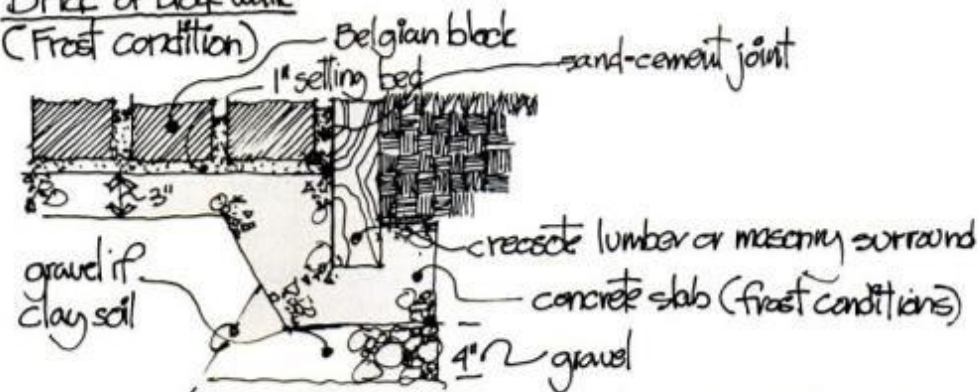 (Frost condition)
Belgian block
1" setting bed
sand-cement joint
3"
creosote lumber or masonry surround
gravel if
clay soil
concrete slab (frost conditions)
4" gravel